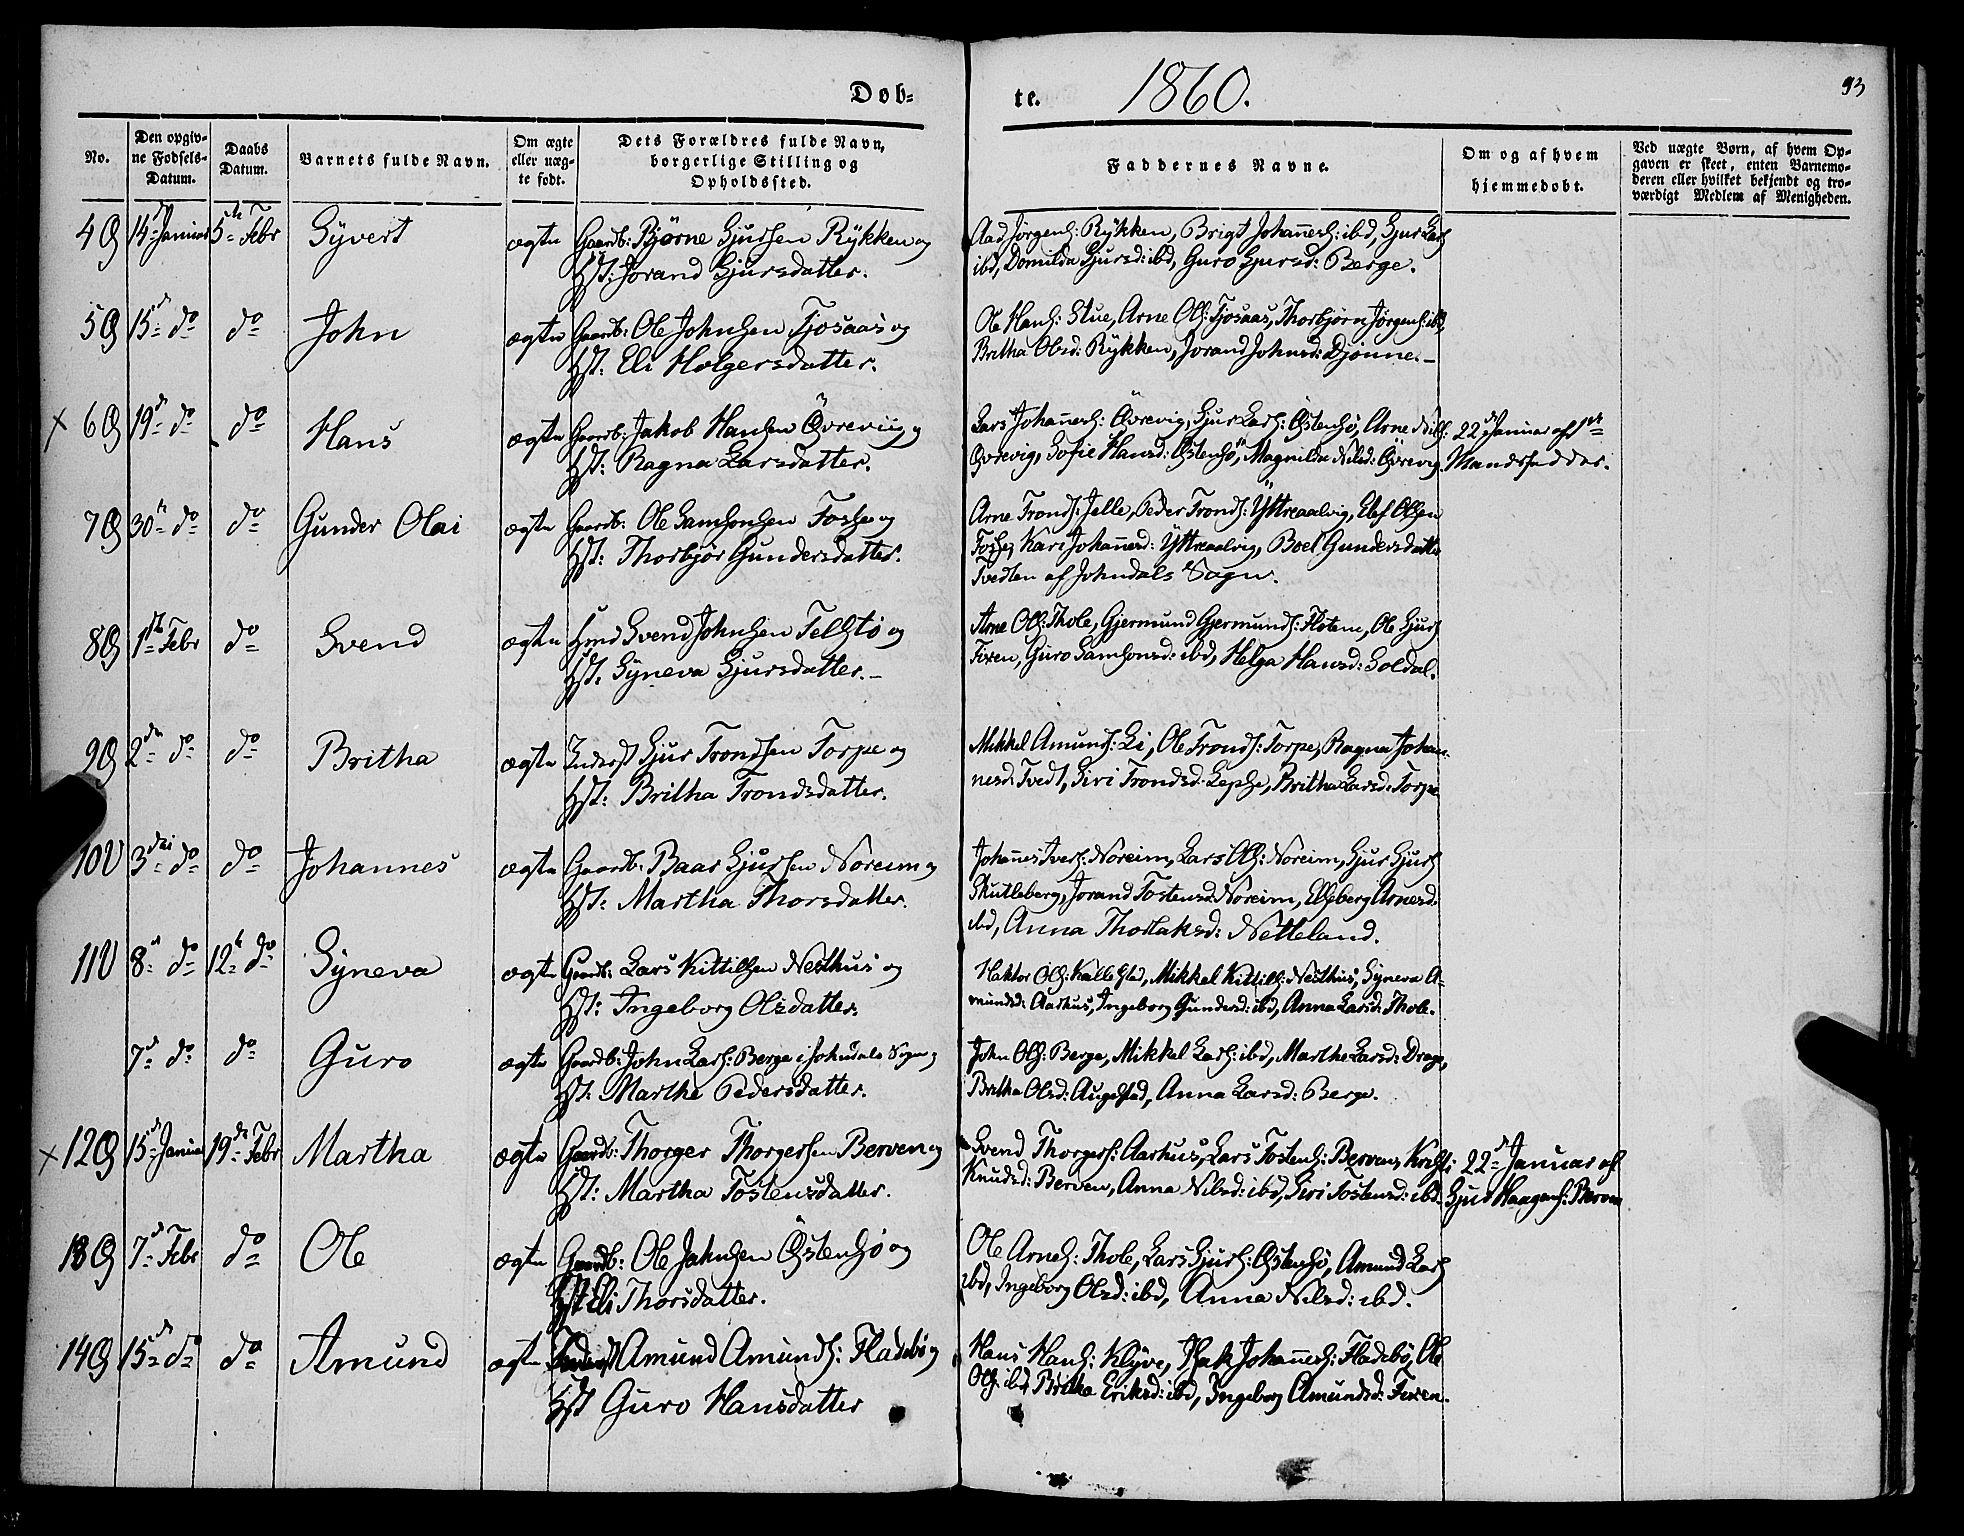 Døb- te. 1860. 93
No. Den opgivne Fødsels-Datum. Daabs Datum. Barnets fulde Navn. Om ægte eller uægte født. Dets Forældres fulde Navn, borgerlige Stilling og Opholdssted. Faddernes Navne. Om og af hvem hjemmedøbt. Ved uægte Børn, af hvem Opgaven er skeet, enten Barnemoderen eller hvilket bekjendt og troværdigt Medlem af Menigheden.
4 Ø 14de Januar 5te Febr Syvert ægte Gaardb: Bjørne Sjursen Rykken og
Hst: Jorand Sjursdatter.
Aad Jørgens: Rykken, Brigt Johannes: ibd, Sjur Lars:
ibd, Domilda Sjursd: ibd, Guro Sjursd: Berge.
5 Ø 15de do do John ægte Gaardb: Ole Johnsen Fjosaas og
Hst: Eli Holgersdatter.
Ole Hans: Stue, Arne Ols: Fjosaas, Thorbjørn Jørgens: ibd,
Britha Olsd: Rykken, Jorand Johnsd: Djønne.-
x 6 Ø 19de do do Hans ægte Gaardb: Jakob Hansen Øvreviig og
Hst: Ragna Larsdatter.
Lars Johannes: Øvrevig, Sjur Lars: Østensø, Arne Nils:
Øvrevig, Sofie Hansd: Østensø, Magnilda Nilsd: Øvrevig.
22de Januar af 1ste
Mandsfadder.
7 Ø 30te do do Gunder Olai ægte Gaardb: Ole Samsonsen Fosse og
Hst: Thorbjør Gundersdatter.
Arne Tronds: Jelle, Peder Tronds: Yttreaalvig, Elef Olsen
Fosse, Kari Johannesd: Yttreaalvig, Boel Gundersdatter
Tvedten af Johndals Sogn.
8 Ø 1ste Febr do Svend ægte Hmd Svend Johnsen Telstø og
Hst: Syneva Sjursdatter.-
Arne Ols: Thole, Gjermund Gjermunds: Flotene, Ole Sjurs:
Fixen, Guro Samsonsd: ibd, Helga Hansd: Soldal.
9 Ø 2den do do Britha ægte Inderst Sjur Trondsen Torpe og
Hst: Britha Trondsdatter.
Mikkel Amunds: Li, Ole Tronds: Torpe, Ragna Johan-
nesd: Tvedt, Siri Trondsd: Lepse, Britha Larsd: Torpe
10 V 3die do do Johannes ægte Gaardb: Baar Sjursen Noreim og
Hst: Martha Thorsdatter.
Johannes Ivers: Noreim, Lars Ols: Noreim, Sjur Sjurs:
Skutleberg, Jorand Tostensd: Noreim, Elseberg Arnesd:
ibd, Anna Thorlaksd: Netteland.
11 V 8de do 12te do Syneva ægte Gaardb: Lars Kittilsen Nesthus og
Hst: Ingeborg Olsdatter.
Haktor Ols: Kallestad, Mikkel Kittils: Nesthus, Syneva A-
mundsd: Aarhus, Ingeborg Gundersd: ibd, Anna Larsd: Thole.
7de do do Guro ægte Gaardb: John Lars: Berge i Johndals Sogn og
Hst: Marthe Pedersdatter.
John Ols: Berge, Mikkel Lars: ibd, Marthe Larsd: Drage,
Britha Olsd: Augestad, Anna Larsd: Berge.
x 12 Ø 15de Januar 19de Febr Martha ægte Gaardb: Thorger Thorgersen Berven og
Hst: Martha Tostensdatter.
Svend Thorgers: Aarhus, Lars Tostens: Berven, Kristi
Knudsd: Berven, Anna Nilsd: ibd, Siri Tostensd: ibd.
22de Januar af
Sjur Haagens: Berven
13 Ø 7de Febr do Ole ægte Gaardb: Ole Johnsen Østensø og
Hst: Eli Thorsdatter.
Ole Arnes: Thole, Lars Sjurs: Østensø, Amund Lars:
ibd, Ingeborg Olsd: ibd, Anna Nilsd: ibd.
14 Ø 15de do do Amund ægte Inderst Amund Amunds: Fladebø og
Hst Guro Hansdatter
Hans Hans: Klyve, Isak Johannes: Fladebø, Ole
Ols: ibd, Britha Eriksd: ibd, Ingeborg Amundsd: Fixen.